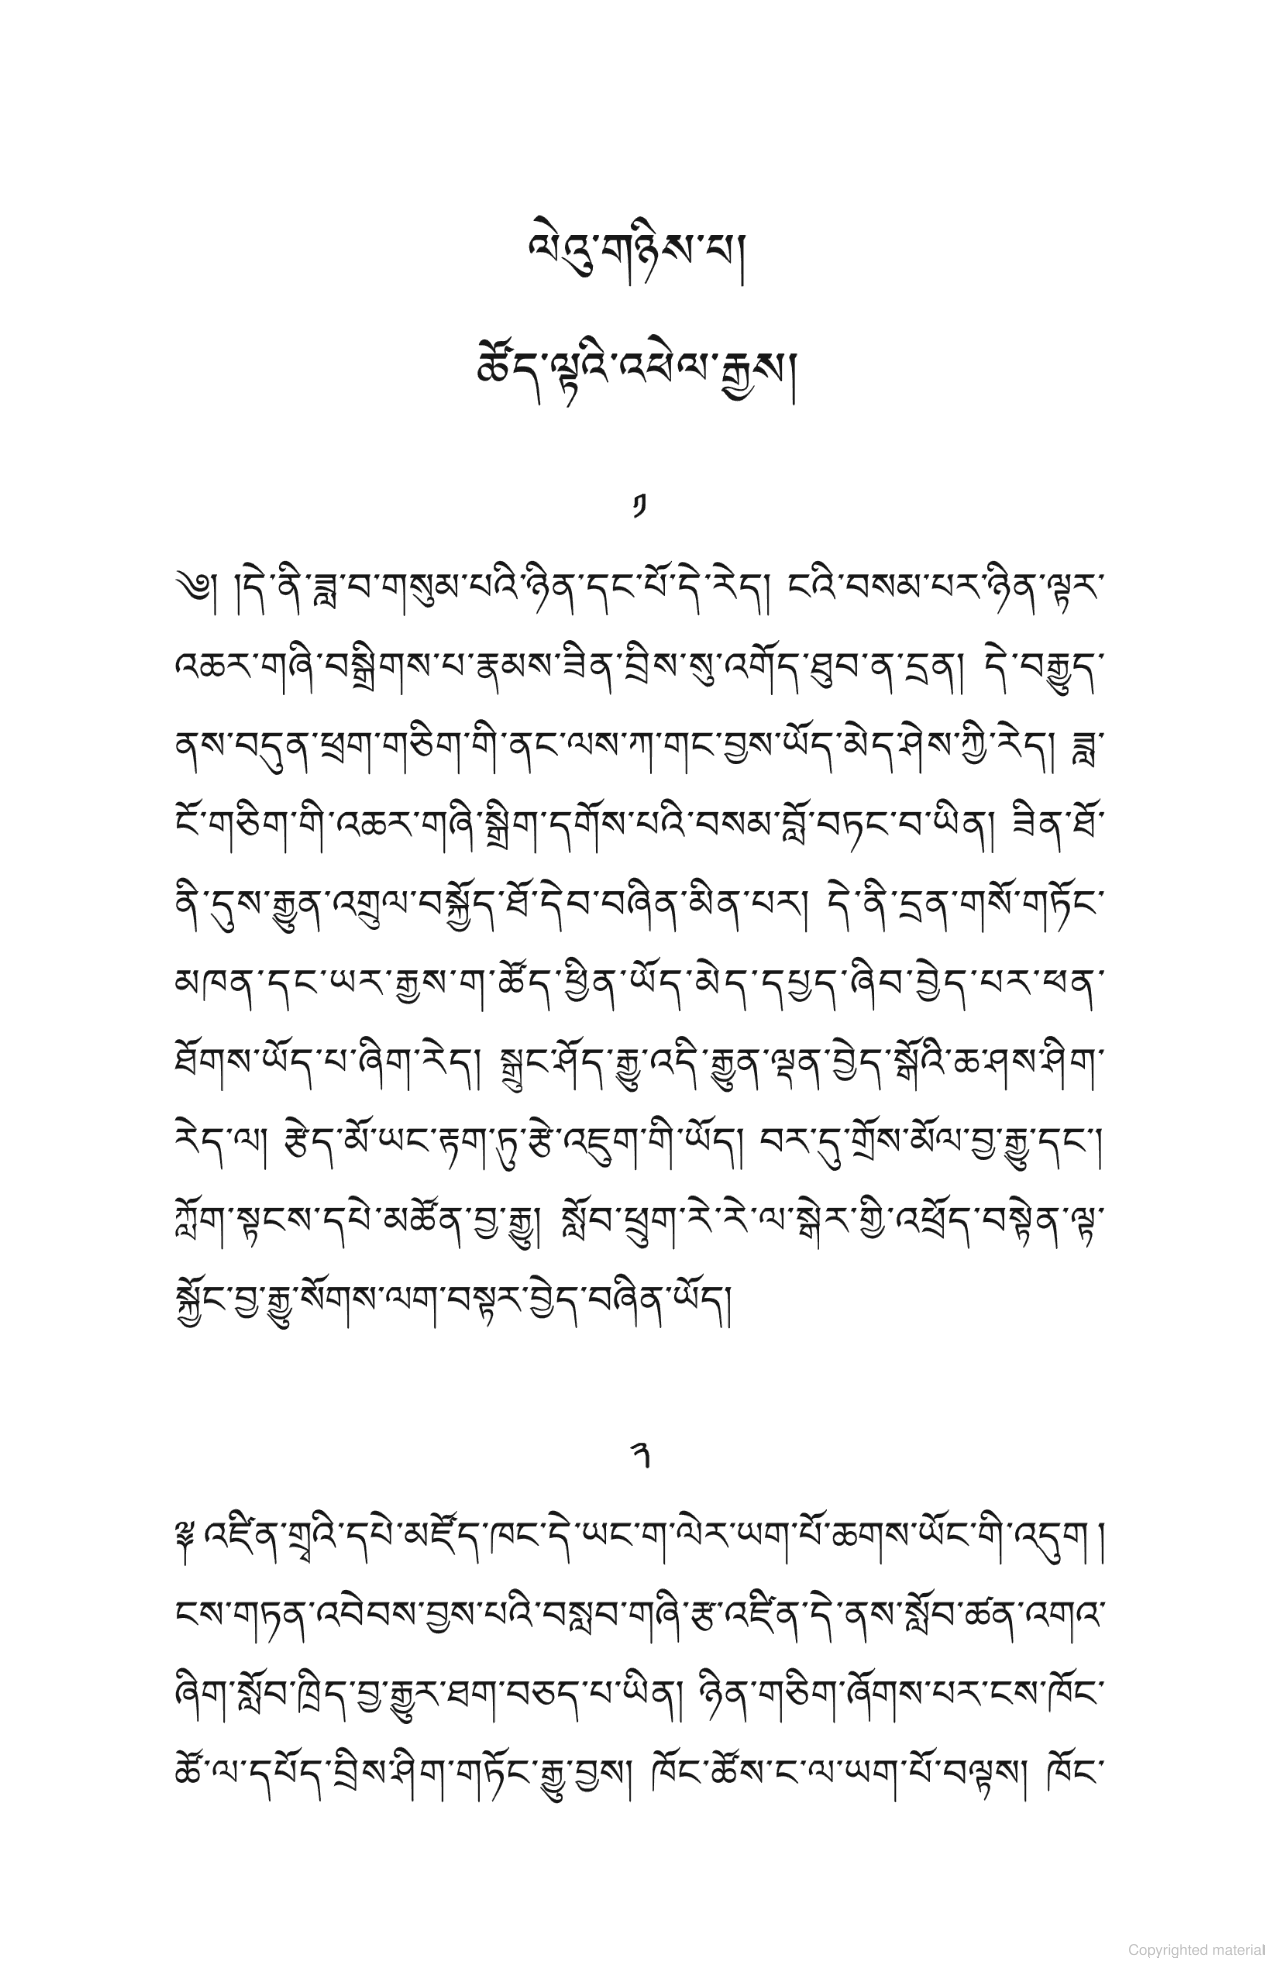 ལེའུ་གཉིས་པ།
ཚོད་ལྟའི་འཕེལ་རྒྱས།
༡
༄། །དེ་ནི་ཟླ་བ་གསུམ་པའི་ཉིན་དང་པོ་དེ་རེད། ངའི་བསམ་པར་ཉིན་ལྟར་
འཆར་གཞི་བསྒྲིགས་པ་རྣམས་ཟིན་བྲིས་སུ་འགོད་ཐུབ་ན་དྲན། དེ་བརྒྱུད་
ནས་བདུན་ཕྲག་གཅིག་གི་ནང་ལས་ཀ་གང་བྱས་ཡོད་མེད་ཤེས་ཀྱི་རེད། ཟླ་
ངོ་གཅིག་གི་འཆར་གཞི་སྒྲིག་དགོས་པའི་བསམ་བློ་བཏང་བ་ཡིན། ཟིན་ཐོ་
ནི་དུས་རྒྱུན་འགྲུལ་བསྐྱོད་ཐོ་དེབ་བཞིན་མིན་པར། དེ་ནི་དྲན་གསོ་གཏོང་
མཁན་དང་ཡར་རྒྱས་ག་ཚོད་ཕྱིན་ཡོད་མེད་དཔྱད་ཞིབ་བྱེད་པར་ཕན་
ཐོགས་ཡོད་པ་ཞིག་རེད། སྒྲུང་ཤོད་རྒྱུ་འདི་རྒྱུན་ལྡན་བྱེད་སྒོའི་ཆ་ཤས་ཤིག་
རེད་ལ། རྩེད་མོ་ཡང་རྟག་ཏུ་རྩེ་འཇུག་གི་ཡོད། བར་དུ་གྲོས་མོལ་བྱ་རྒྱུ་དང་།
ཀློག་སྟངས་དཔེ་མཚོན་བྱ་རྒྱུ། སློབ་ཕྲུག་རེ་རེ་ལ་སྒེར་གྱི་འཕྲོད་བསྟེན་ལྟ་
སྐྱོང་བྱ་རྒྱུ་སོགས་ལག་བསྟར་བྱེད་བཞིན་ཡོད།
༢
༈ འཛིན་གྲྭའི་དཔེ་མཛོད་ཁང་དེ་ཡང་ག་ལེར་ཡག་པོ་ཆགས་ཡོང་གི་འདུག །
ངས་གཏན་འབེབས་བྱས་པའི་བསླབ་གཞི་རྩ་འཛིན་དེ་ནས་སློབ་ཚན་འགའ་
ཞིག་སློབ་ཁྲིད་བྱ་རྒྱུར་ཐག་བཅད་པ་ཡིན། ཉིན་གཅིག་ཞོགས་པར་ངས་ཁོང་
ཚོ་ལ་དཔོད་བྲིས་ཤིག་གཏོང་རྒྱུ་བྱས། ཁོང་ཚོས་ང་ལ་ཡག་པོ་བལྟས། ཁོང་
Copyrighted material